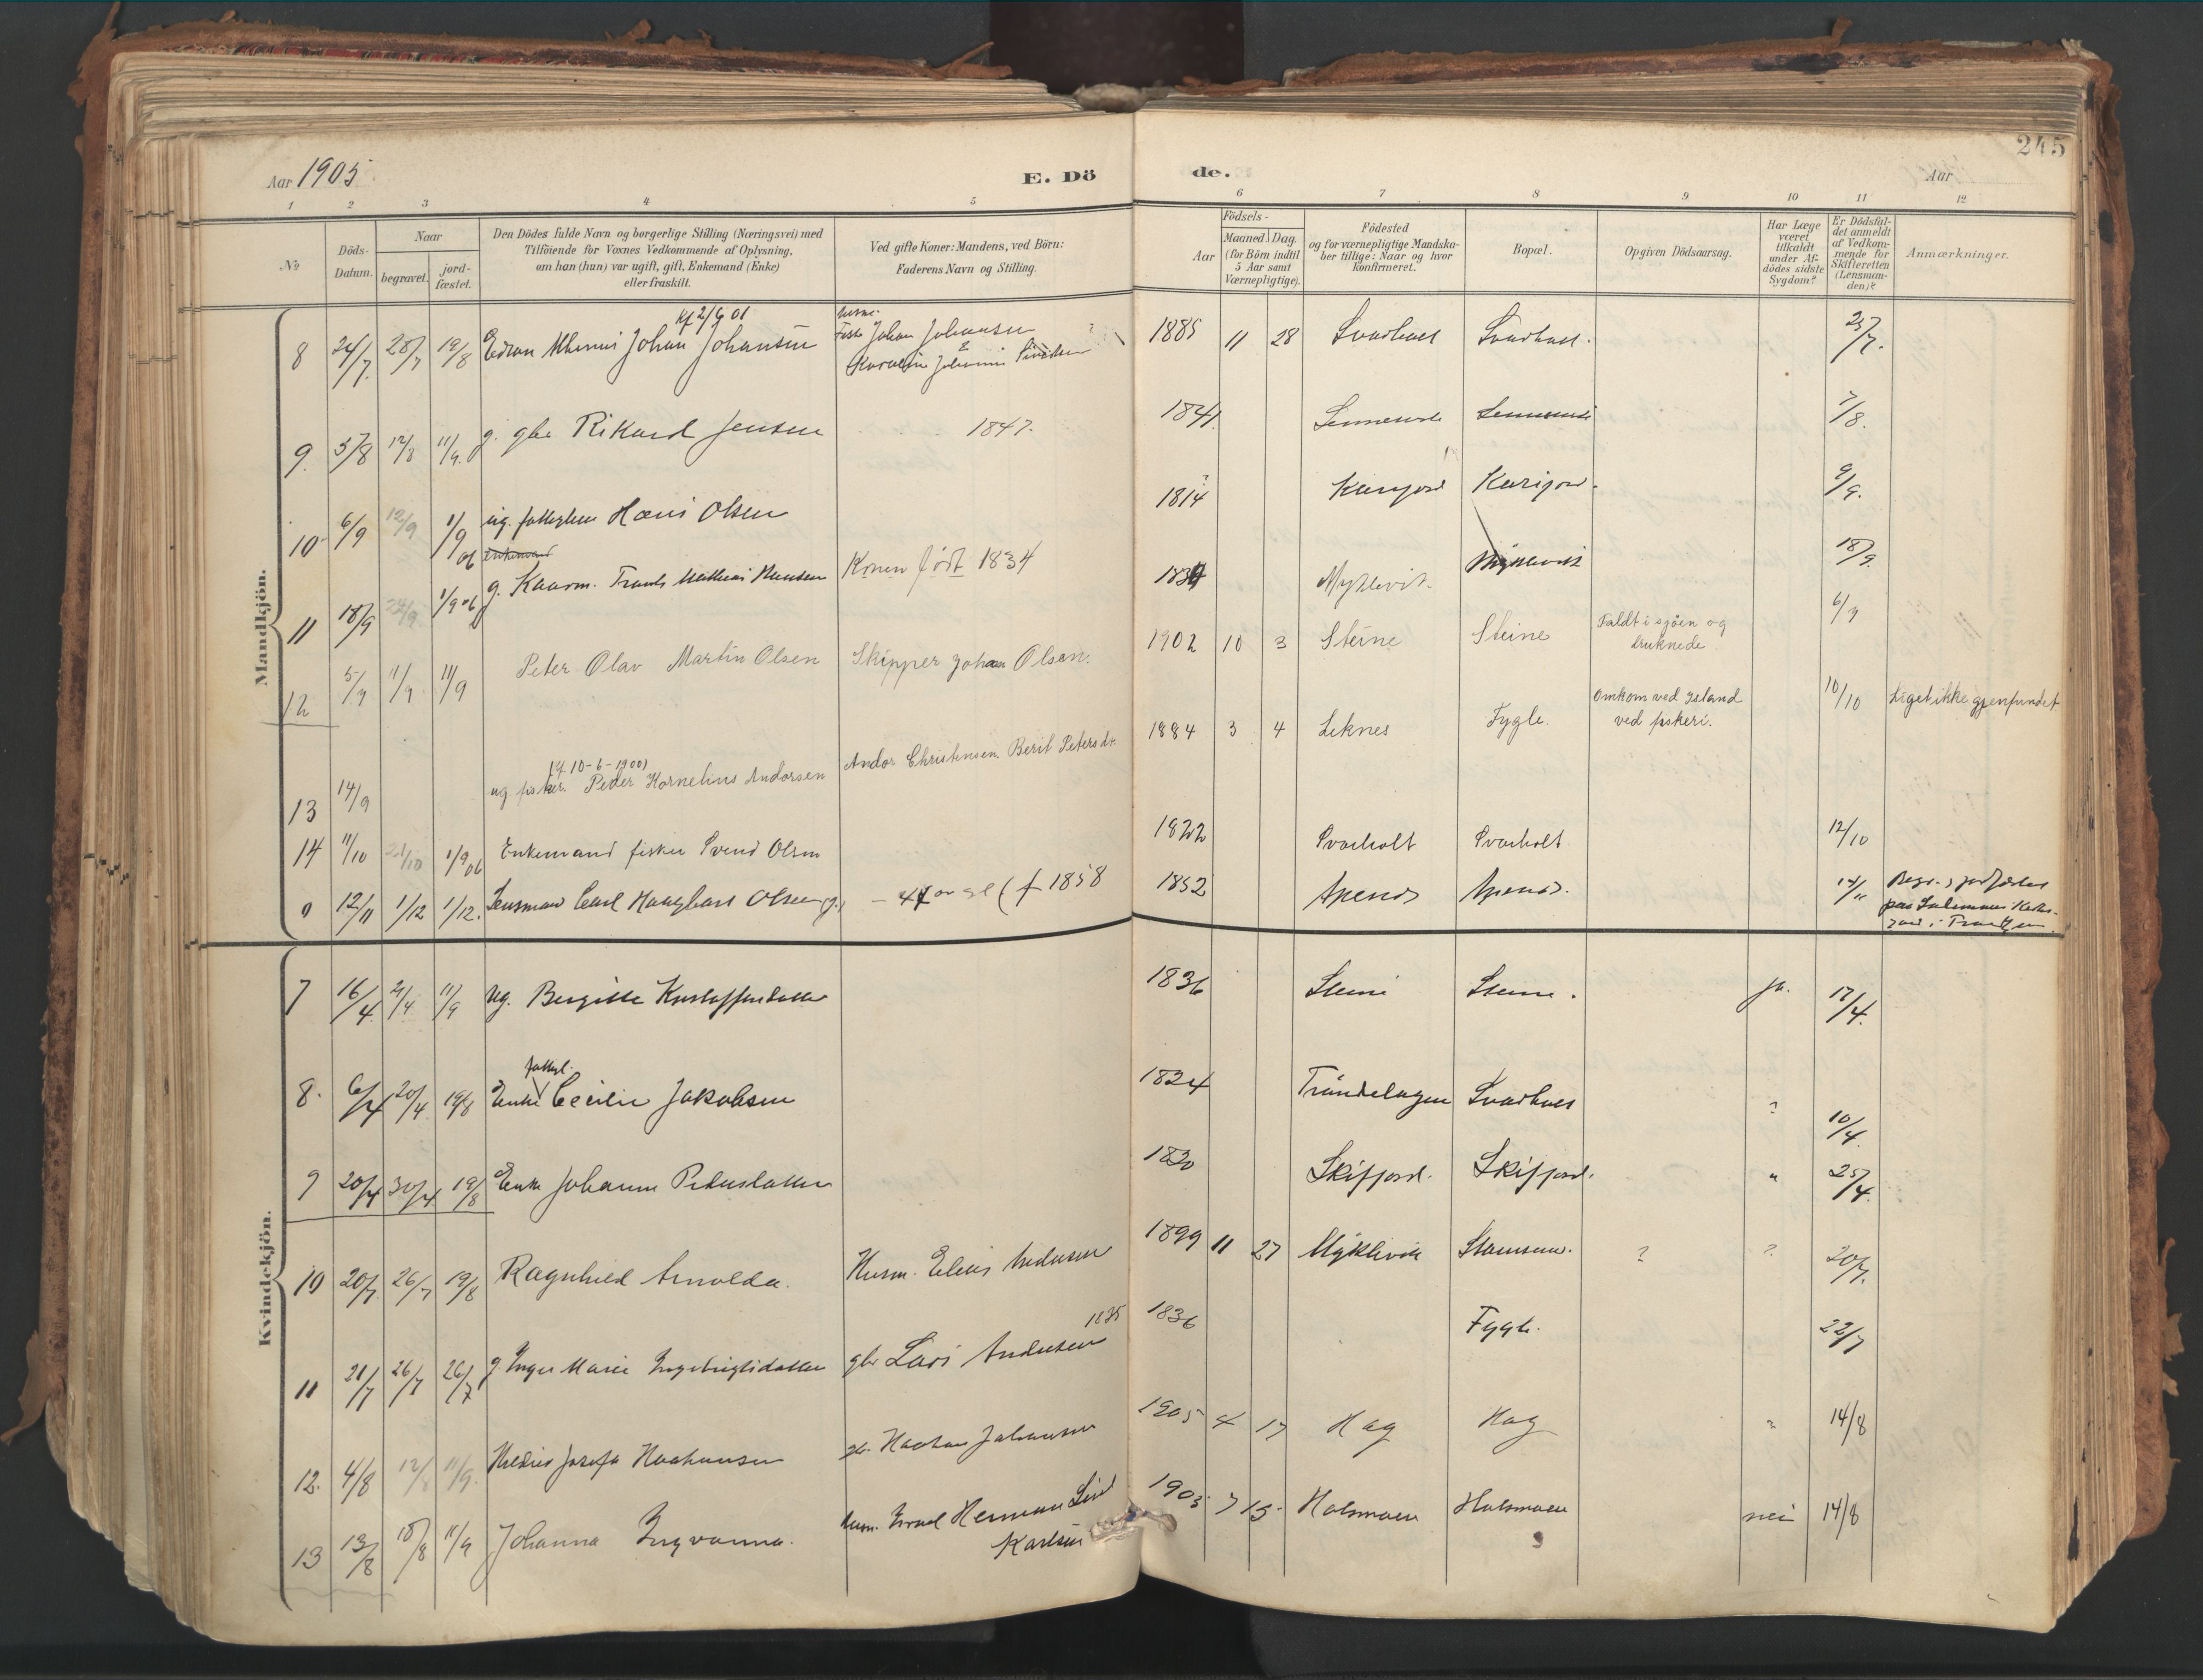 Aar 1905.
E. Dö
de.
Aar
245
1 2 3 4 5 6 7 8 9 10 11 12
No
Döds-Datum.
Naar
begravet.
jord-fæstet.
Den Dödes fulde Navn og borgerlige Stilling (Næringsvei) med
Tilföiende for Voxnes Vedkommende af Oplysning,
om han (hun) var ugift, gift, Enkemand (Enke)
eller fraskilt.
Ved gifte Koner: Mandens, ved Börn:
Faderens Navn og Stilling.
Födsels-
Aar
Maaned. Dag.
(for Börn indtil
5 Aar samt
Værnepligtige).
Födested
og for værnepligtige Mandska-
ber tillige: Naar og hvor
konfirmeret.
Bopæl.
Opgiven Dödsaarsag.
Har Læge
været
tilkaldt
under Af-
dödes sidste
Sygdom?
Er Dödsfal-
det anmeldt
af Vedkom-
mende for
Skifteretten
(Lensman-
den)?
Anmærkninger.
Mandkjön.
8 24/7 28/7 19/8 Johan Johansen Johan Johansen 1885 11 28 25/7.
9. 12/8 11/9. g. gbr Rikard Jensen 1847. 1841 7/8.
10 6/9 12/9 1/9 06 ug. Hans Olsen 1814 ? 9/9.
11 18/9 1/9 06 g. Kaarm. Mathias Hansen Konen født 1834 Myklevik. Myklevik 18/9.
12 5/9 11/9 11/9 Peter Olav Martin Olsen Skipper Johan Olsen. 1902 10 3 Steine Steine Faldt i sjøen og
druknede 6/9
13 14/9 (kf 10-6-1900)
ug fisker. Peder Kornelius Andorsen Andor Christensen. Berit Petersdr. 1884 3 4 Leknes Fygle. Omkom ved Island
ved fiskeri. 10/10 Liget ikke gjenfundet
14 11/10 21/10 1/9 06 Enkemand fisker Svend Olsen 1822 Svarholt Svarholt 12/10
12/11 1/12 1/12. Lensmand Carl Olsen g. f 1858 1852 14/11
Kvindekjön.
7 16/4 11/9 ug. Bergitte Kristoffersdatter 1836 Steine Steine. ja. 17/4.
8. 6/4 20/4 19/8 Enke Cecilie Jakobsen 1824 Tröndelagen Svarholt ? 10/4.
9 20/4 30/4 19/8 Enke Johanna Pedersdatter 1830 Skifjord. Skifjord. " 25/4.
10 20/7 26/7 19/8 Ragnhild Arnolda. Husm. Elias Andersen 1899 11 27 Myklevik Stamsund. ? ? 20/7.
11 21/7 26/7 26/7 g. Inger Marie Ingebrigtsdatter gbr Lars Andersen 1835 1836 Fygle. 22/7
12. 4/8 12/8 11/9. Josefa Haakonsen gb. Haakon Johansen 1905 4 17 Hag Hag ? 14/8
13 13/8 18/8 11/9 Johanna Ingvanna. Husm. Herman
Karlsen 7 15 Holsmoen Holsmoen nei 14/8